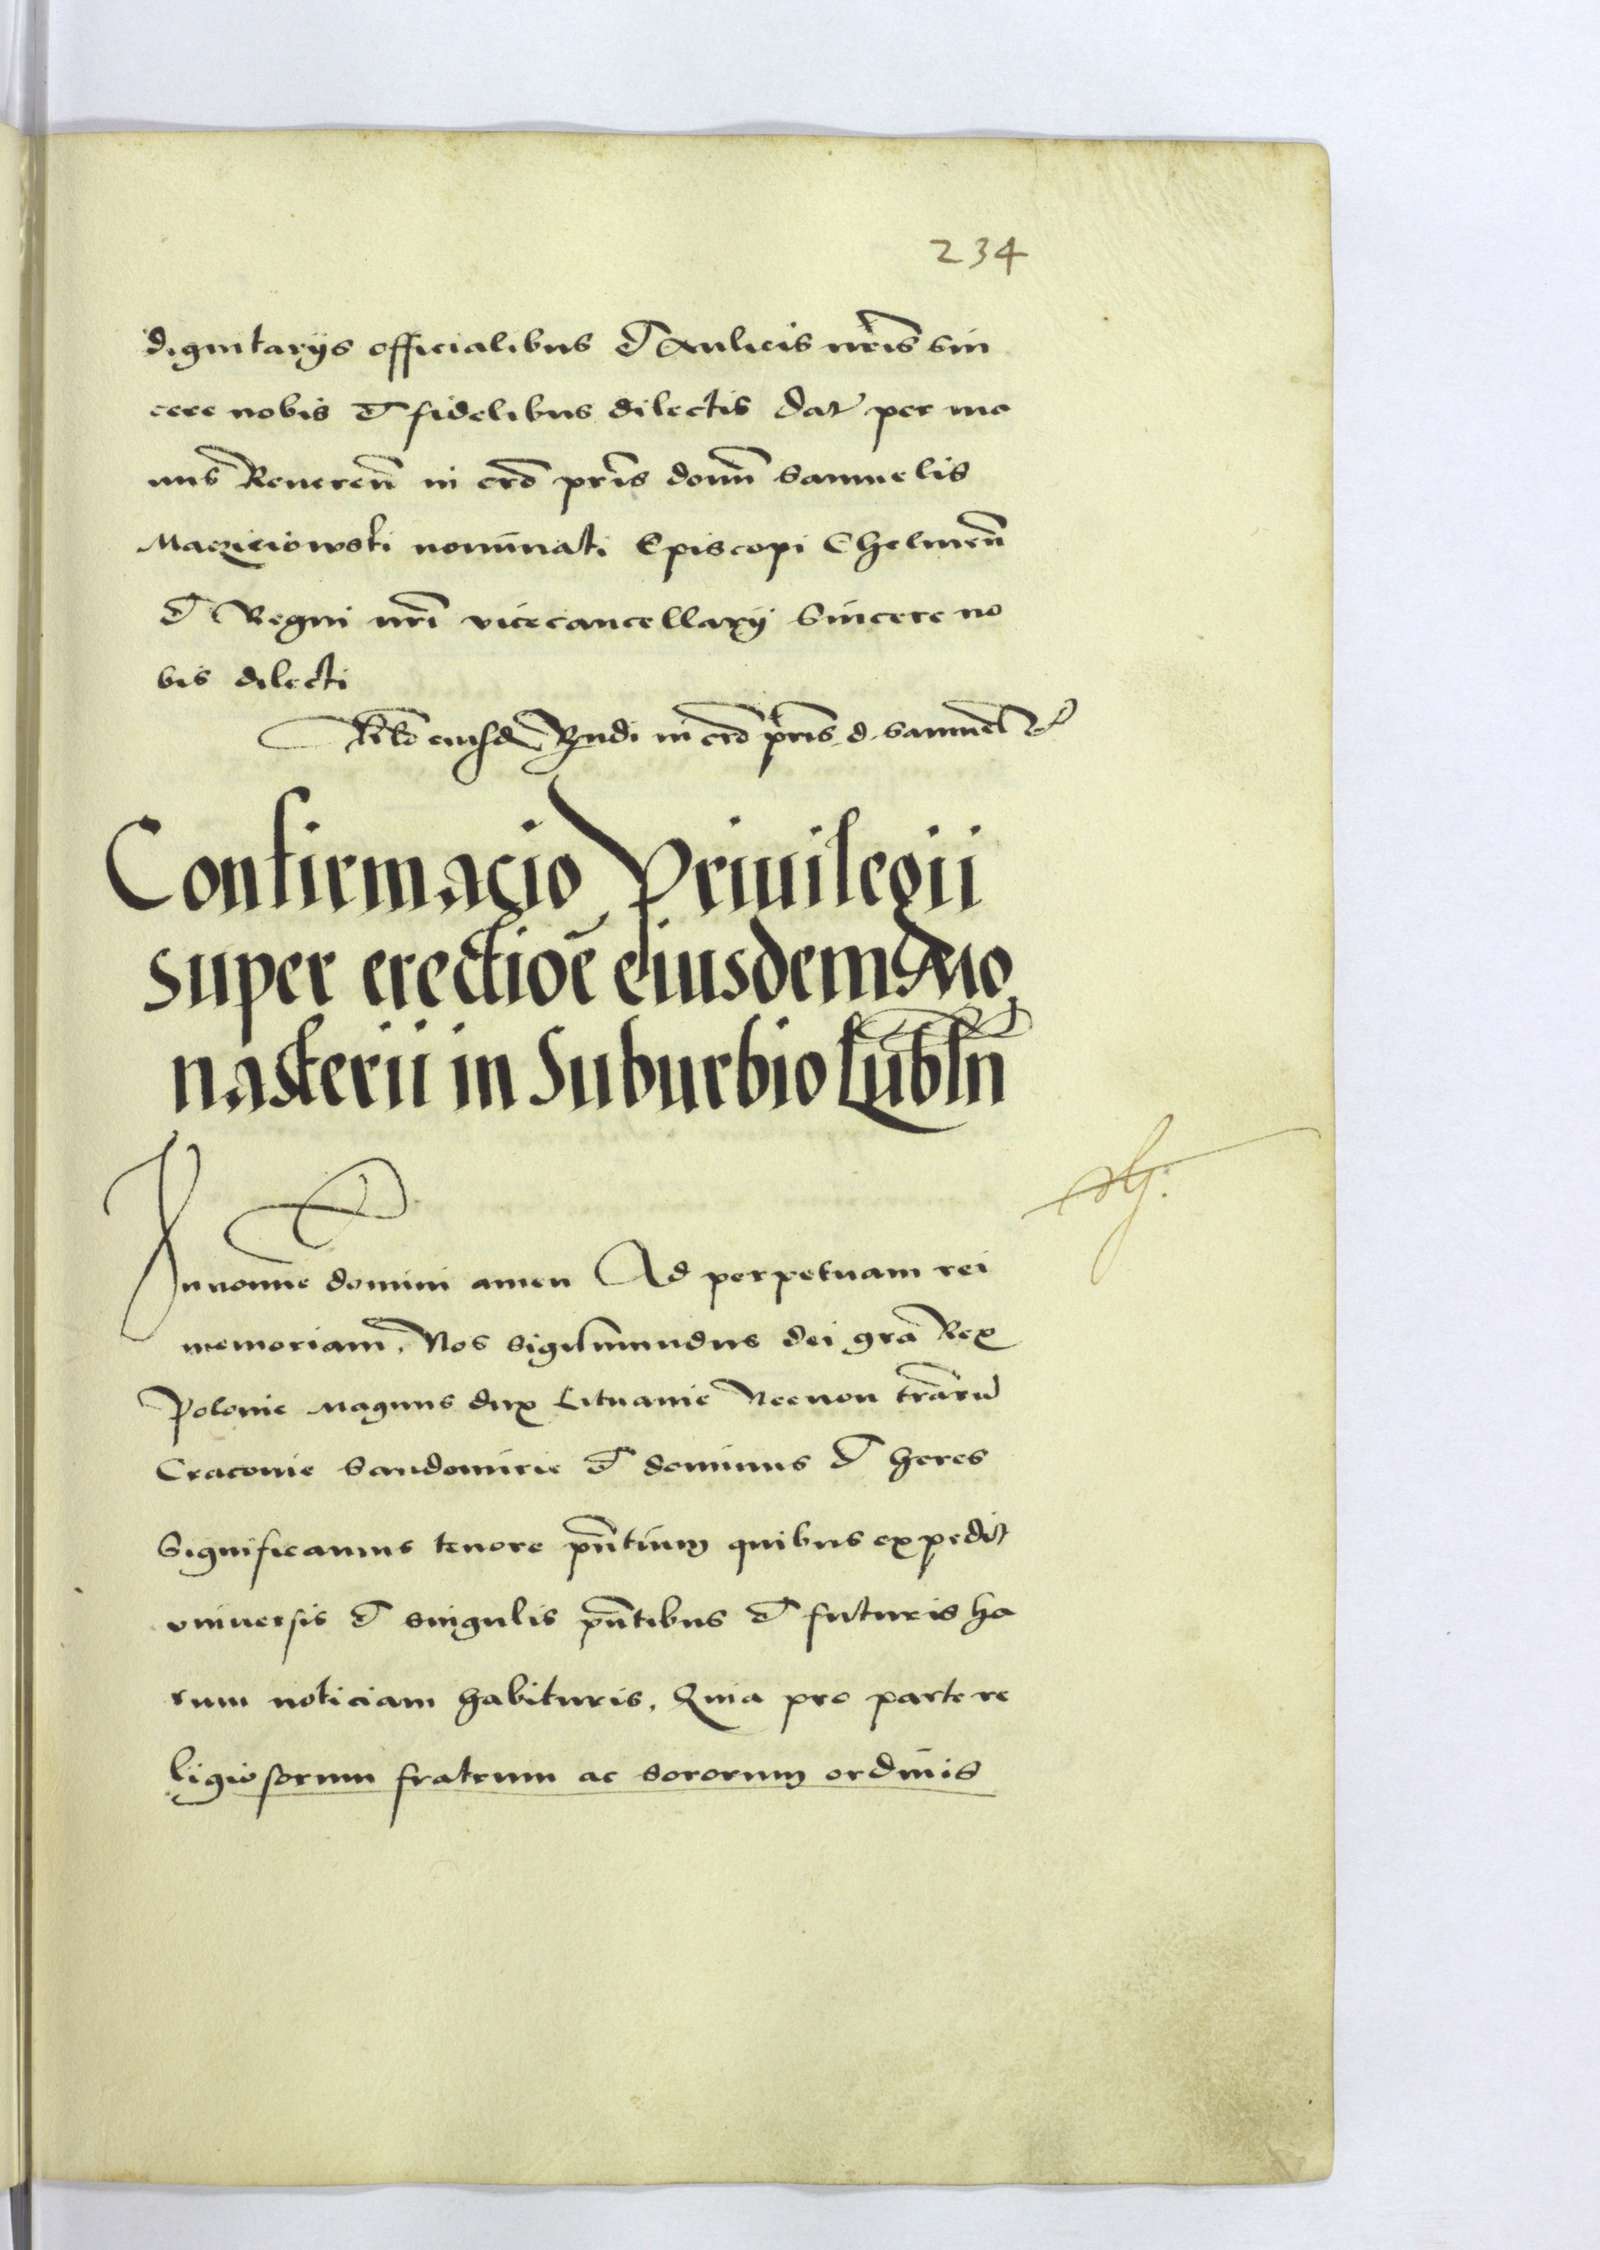 234
dignitarijs officialibus et Aulicis nr̃is sin
cere nobis et fidelibus dilectis Dat per ma
nus Reuereñ in cr̃o pr̃is domñ Samuelis
Maczieiowski nominati Episcopi Chelmeñ
et Regni nr̃i vicecancellarij Sincere no
bis dilecti
eiusd Rndi in cr̃o pr̃is d. Samuel etc
Confirmacio Priuilegii
super erectioẽ eiusdem Mo
nasterii in Suburbio Lubłn̄
In nomine domini amen Ad perpetuam rei
memoriam. Nos Sigismundus dei gr̃a Rex
Polonie Magnus dux Lituanie Necnon tr̃arũ
Cracouie Sandomirie etc dominus et heres
Significamus tenore pñtium quibus expedit
vniuersis et singulis pñtibus et futuris ha
rum noticiam habituris. Quia pro parte re
ligiosorum fratrum ac sororum ordinis